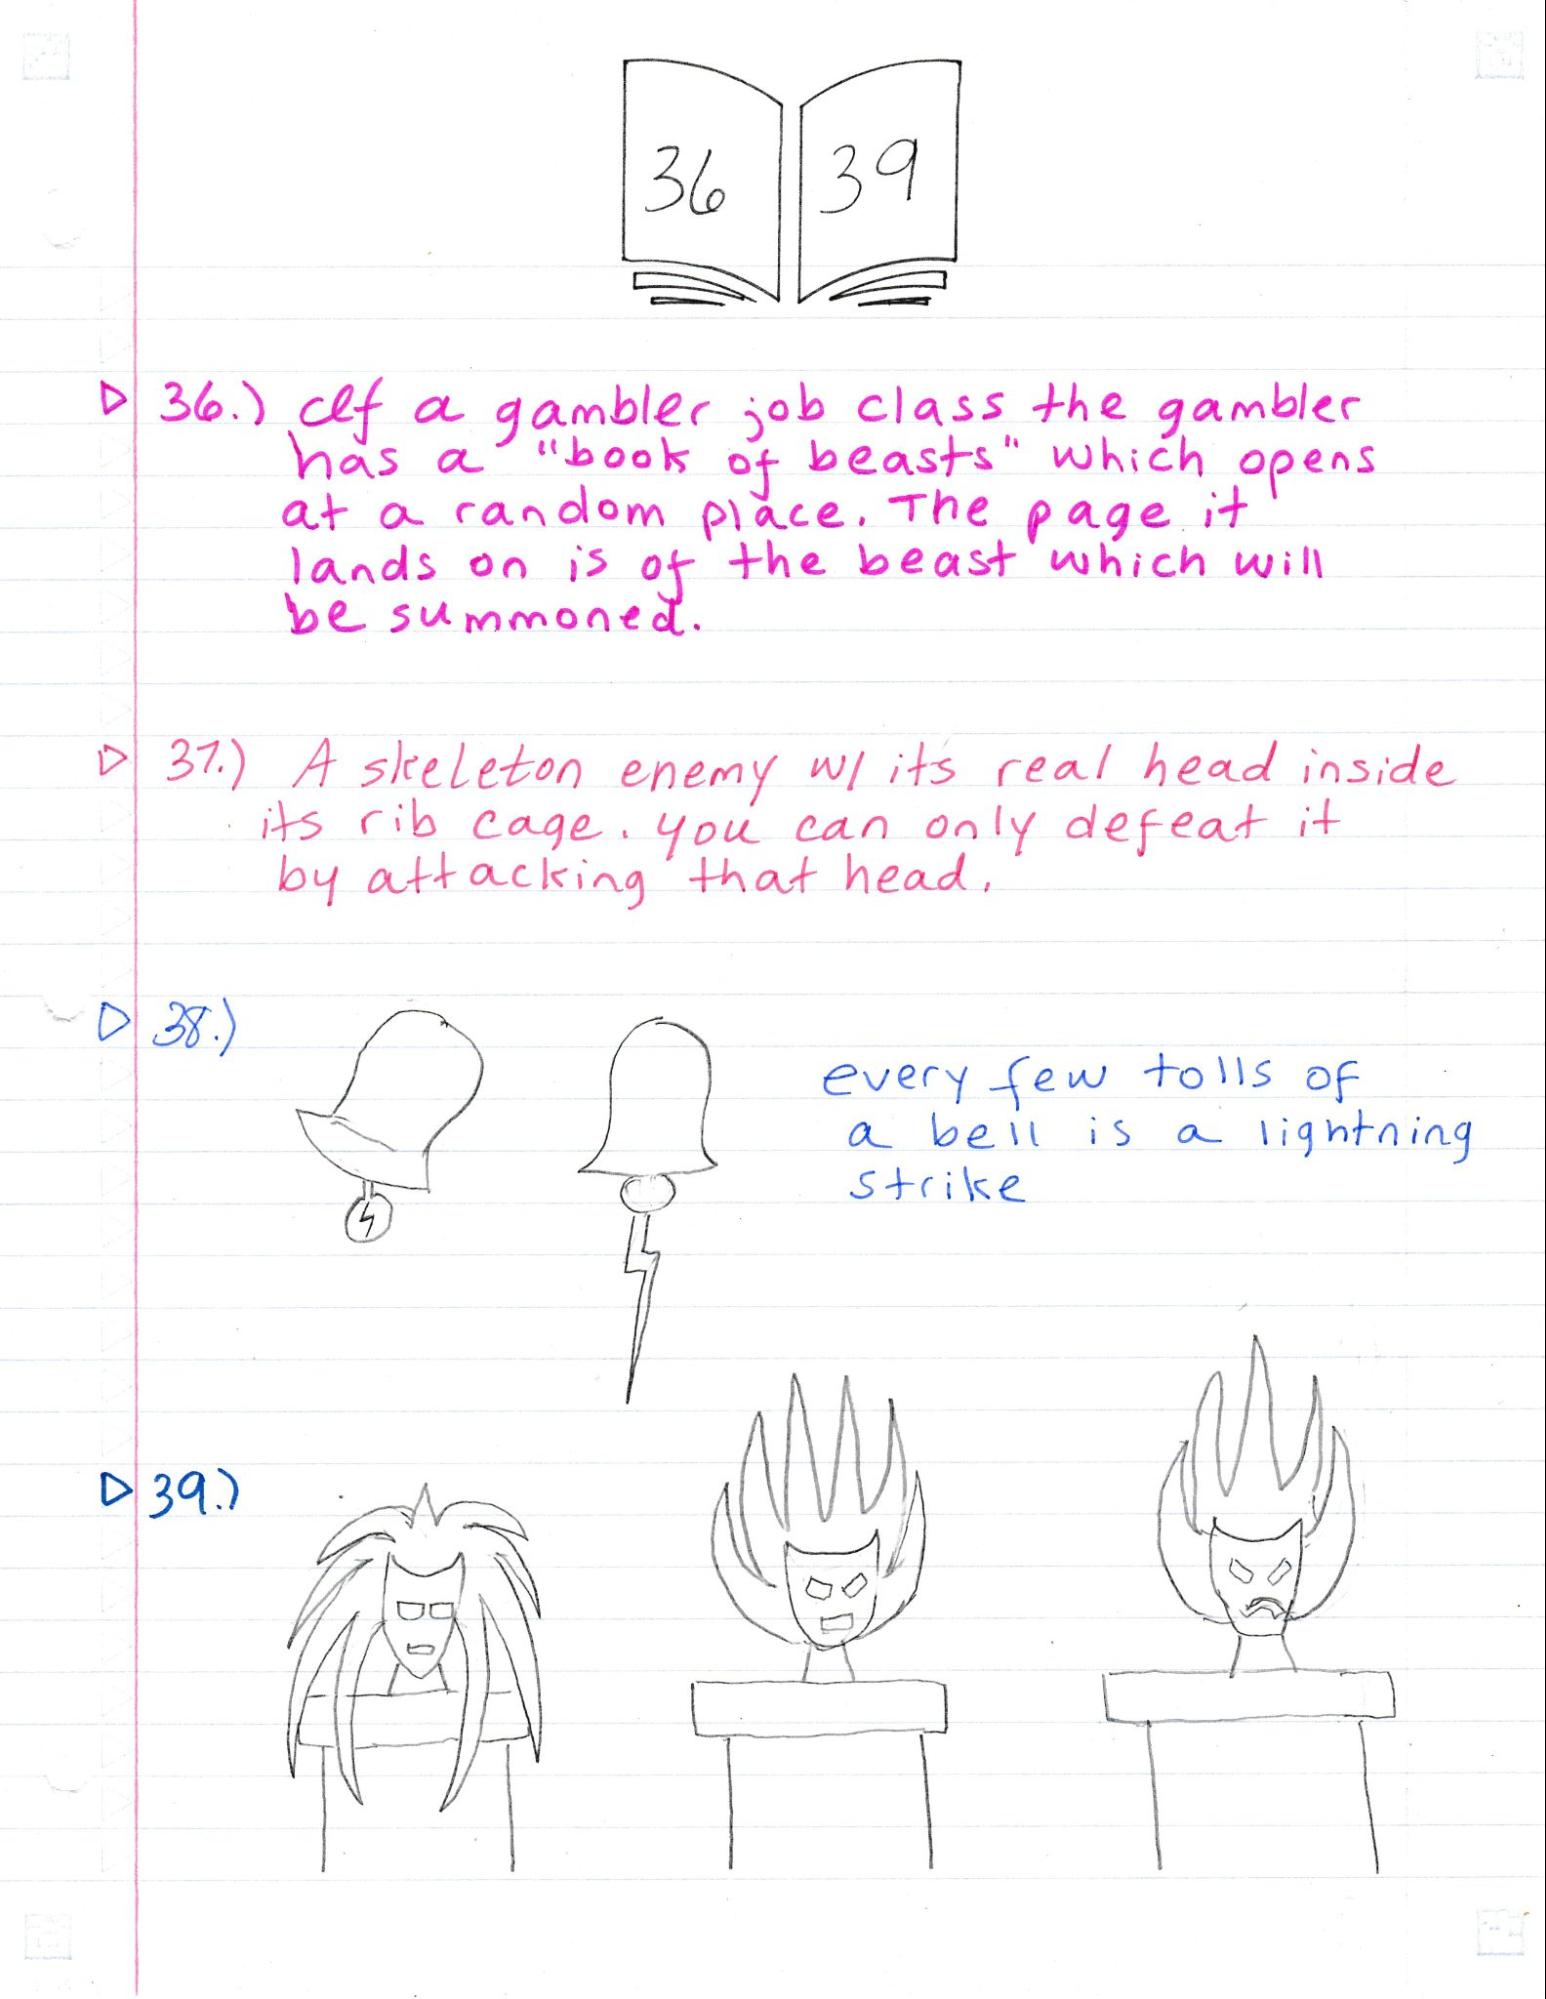 36 39
36.) If a gambler job class the gambler
has a "book of beasts" which opens
at a random place. The page it
lands on is of the beast which will
be summoned.
37.) A skeleton enemy w/ its real head inside
its rib cage. you can only defeat it
by attacking that head.
38.)
every few tolls of
a bell is a lightning
strike
39.)